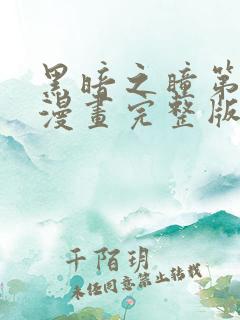 黑暗之瞳第
漫畫完整版
千陌玥
未经同意禁止转载